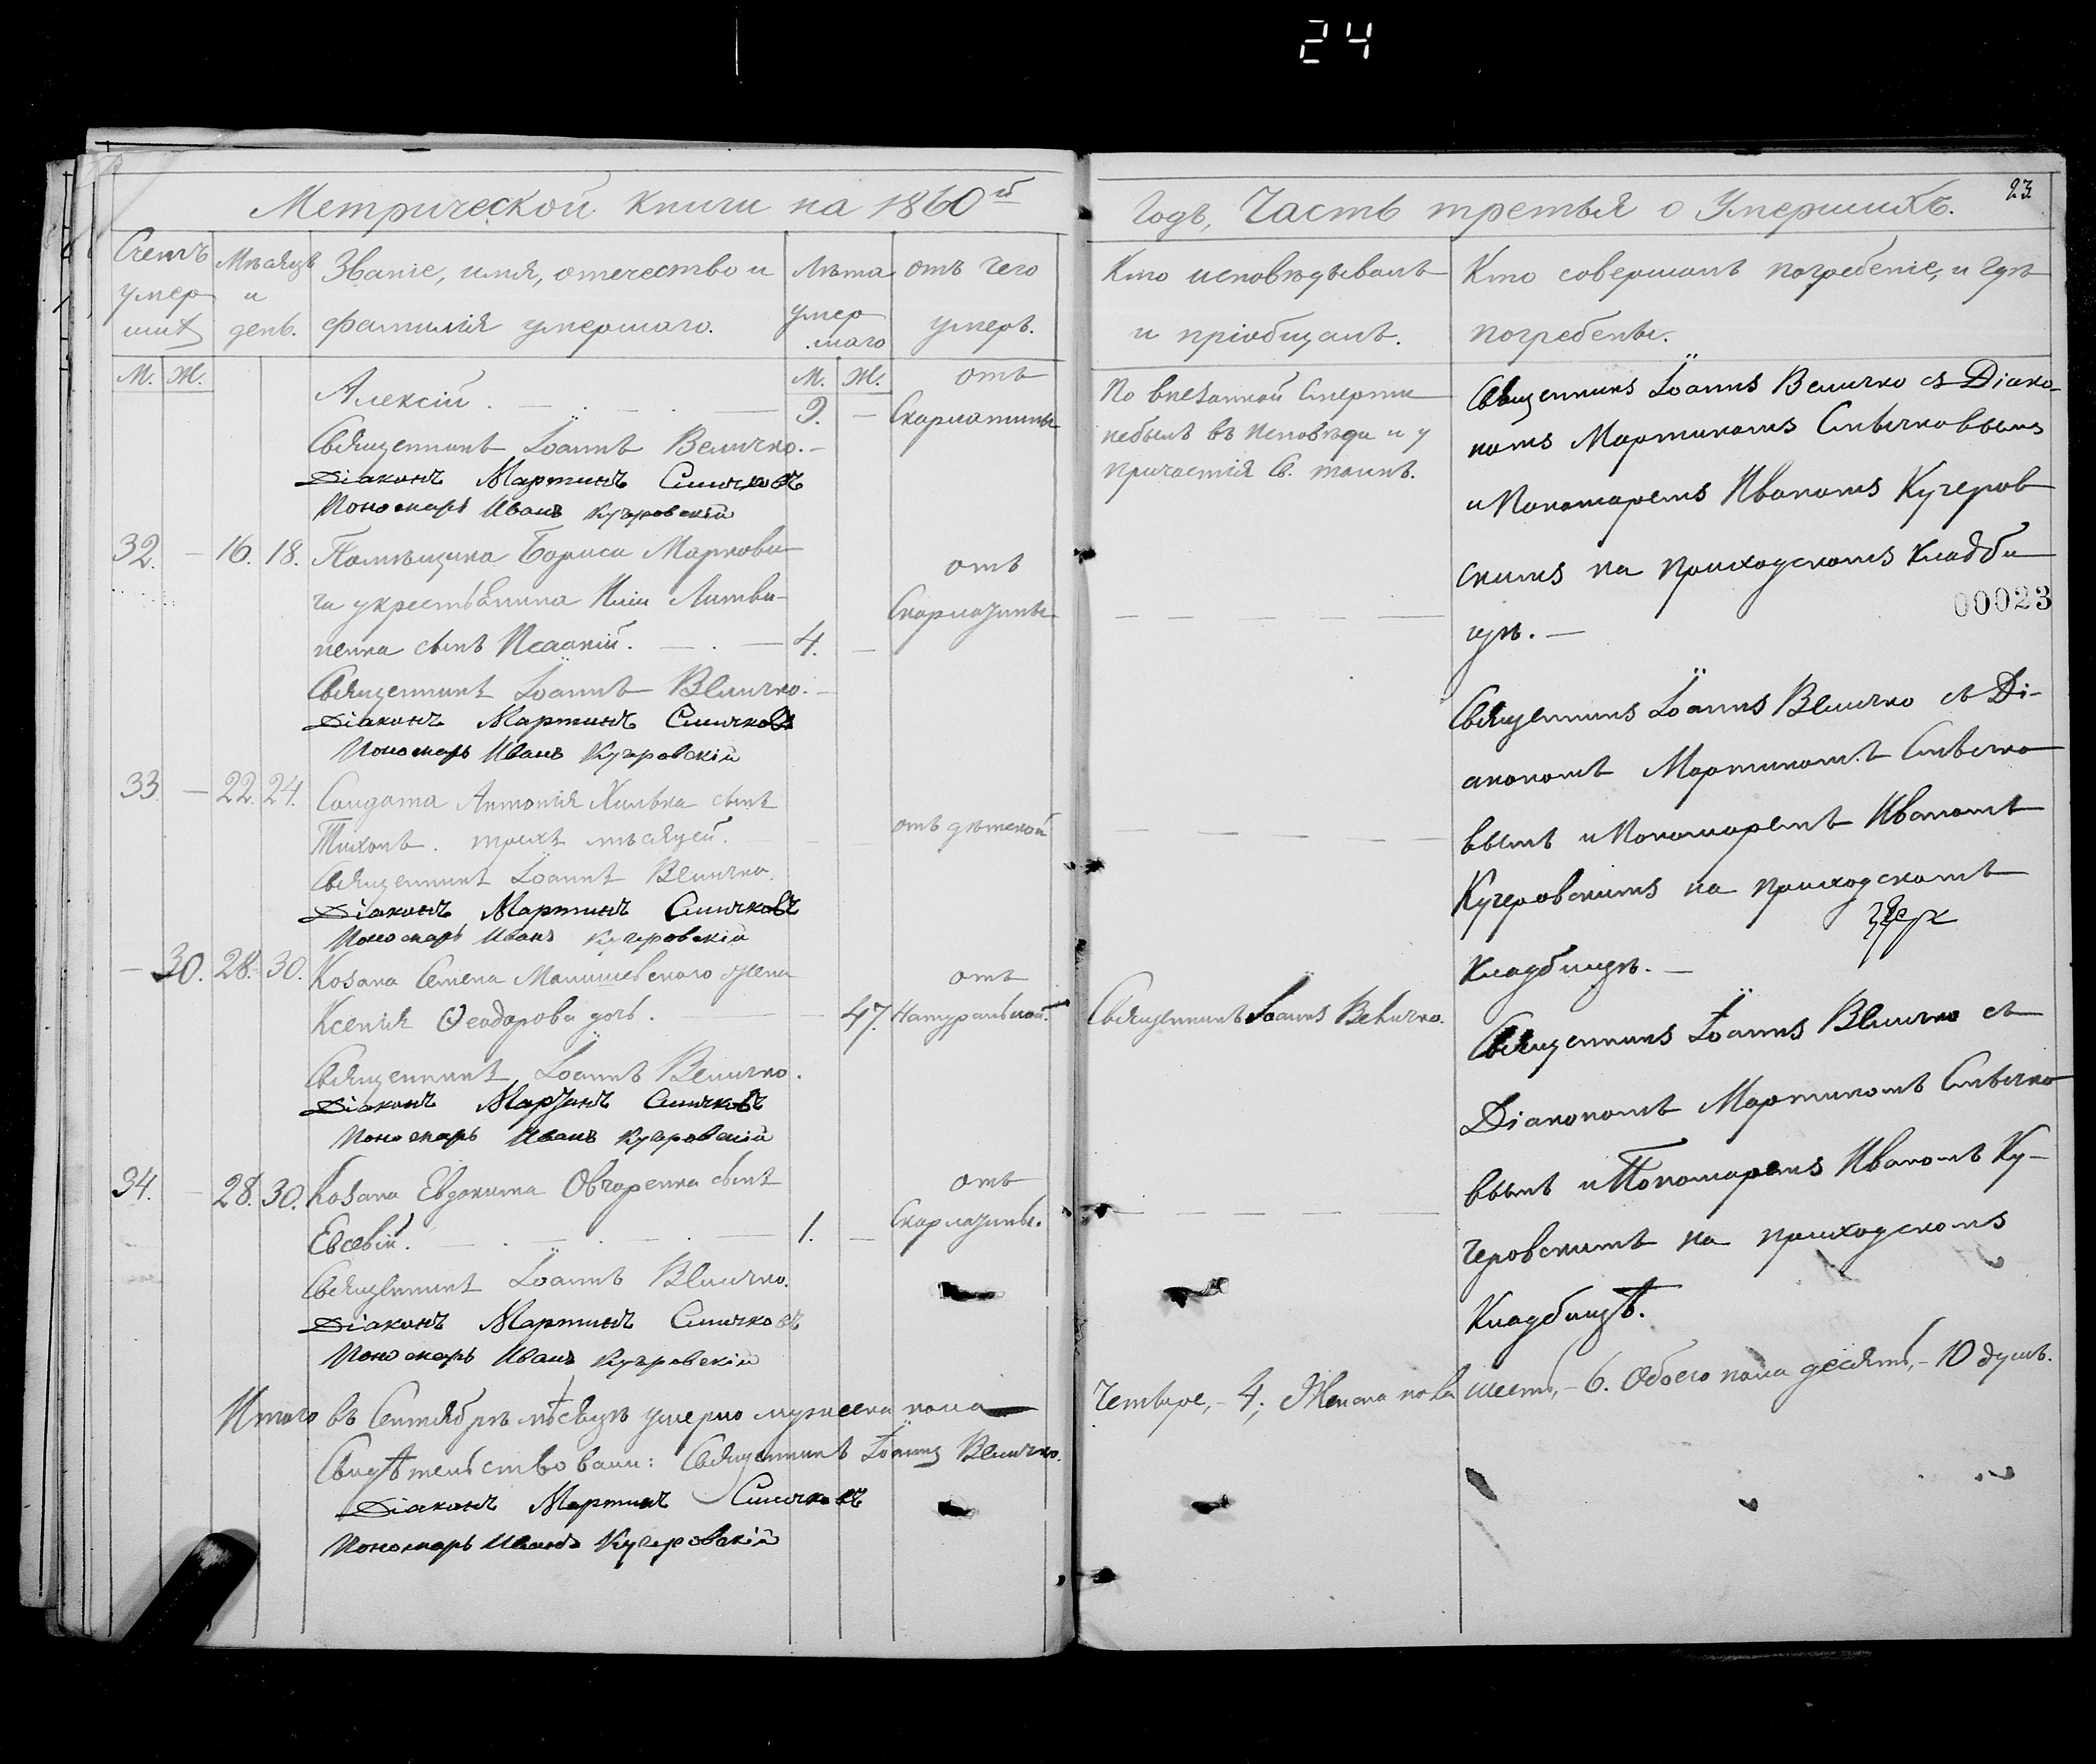 24
Метрической книги на 1860й
Счетъ умершихъ
Мѣсяцъ и день.
Званіе, имя, отечество и фамилія умершаго.
Лѣта умершаго
отъ чего умеръ.
М. Ж.
М. Ж.
Алексій. 9. — отъ Скарлатины
Священникъ Іоаннъ Величко.
Діаконъ Мартинъ Смычковъ
Пономарь Иванъ Кучеровскій
32. — 16. 18. Помѣщика Бориса Маркови-
ча укрестьянина Иліи Литви- отъ Скарлатины
ненка сынъ Исаакій. — 4. —
Священникъ Іоаннъ Величко.
Діаконъ Мартинъ Смычковъ
Пономарь Иванъ Кучеровскій
33. — 22. 24. Солдата Антонія Хилька сынъ
Тихонъ. трихъ мѣсяцей. отъ дѣтской
Священникъ Іоаннъ Величко.
Діаконъ Мартинъ Смычковъ
Пономарь Иванъ Кучеровскій
— 30. 28. 30. Козака Семена жена отъ
Ксенія Ѳеодорова дочь. — 47. Натуральной.
Священникъ Іоаннъ Величко.
Діаконъ Мартинъ Смычковъ
Пономарь Иванъ Кучеровскій
34. — 28. 30. Козака Евдокима Овчаренка сынъ отъ
Евсевій. — 1. — Скарлатины.
Священникъ Іоаннъ Величко.
Діаконъ Мартинъ Смычковъ
Пономарь Иванъ Кучеровскій
Итого въ Сентябрѣ мѣсяцѣ умерло мужеска пола
Свидѣтельствовали: Священникъ Іоаннъ Величко.
Діаконъ Мартинъ Смычковъ
Пономарь Иванъ Кучеровскій
23
Годъ, Часть третья о Умершихъ.
Кто исповѣдывалъ и пріобщалъ.
Кто совершалъ погребеніе, и гдѣ погребены.
По внезапной Смерти
небылъ въ исповѣди и у
причастія Св. таинъ.
Священникъ Іоаннъ Величко съ Діако-
номъ Мартиномъ Смычковымъ
и Пономаремъ Иваномъ Кучеров
скимъ на приходскомъ кладби
00023
щѣ. —
Священникъ Іоаннъ Величко съ Ді-
акономъ Мартиномъ Смычко
вымъ и Пономаремъ Иваномъ
Кучеровскимъ на приходскомъ
Кладбищѣ. —
Священникъ Іоаннъ Величко.
Священникъ Іоаннъ Величко съ
Діакономъ Мартиномъ Смычко
вымъ и Пономаремъ Иваномъ Ку-
черовскимъ на приходскомъ
Кладбищѣ.
Четыре, - 4; Женска пола шесть, - 6. Обоего пола десять, - 10 душъ.